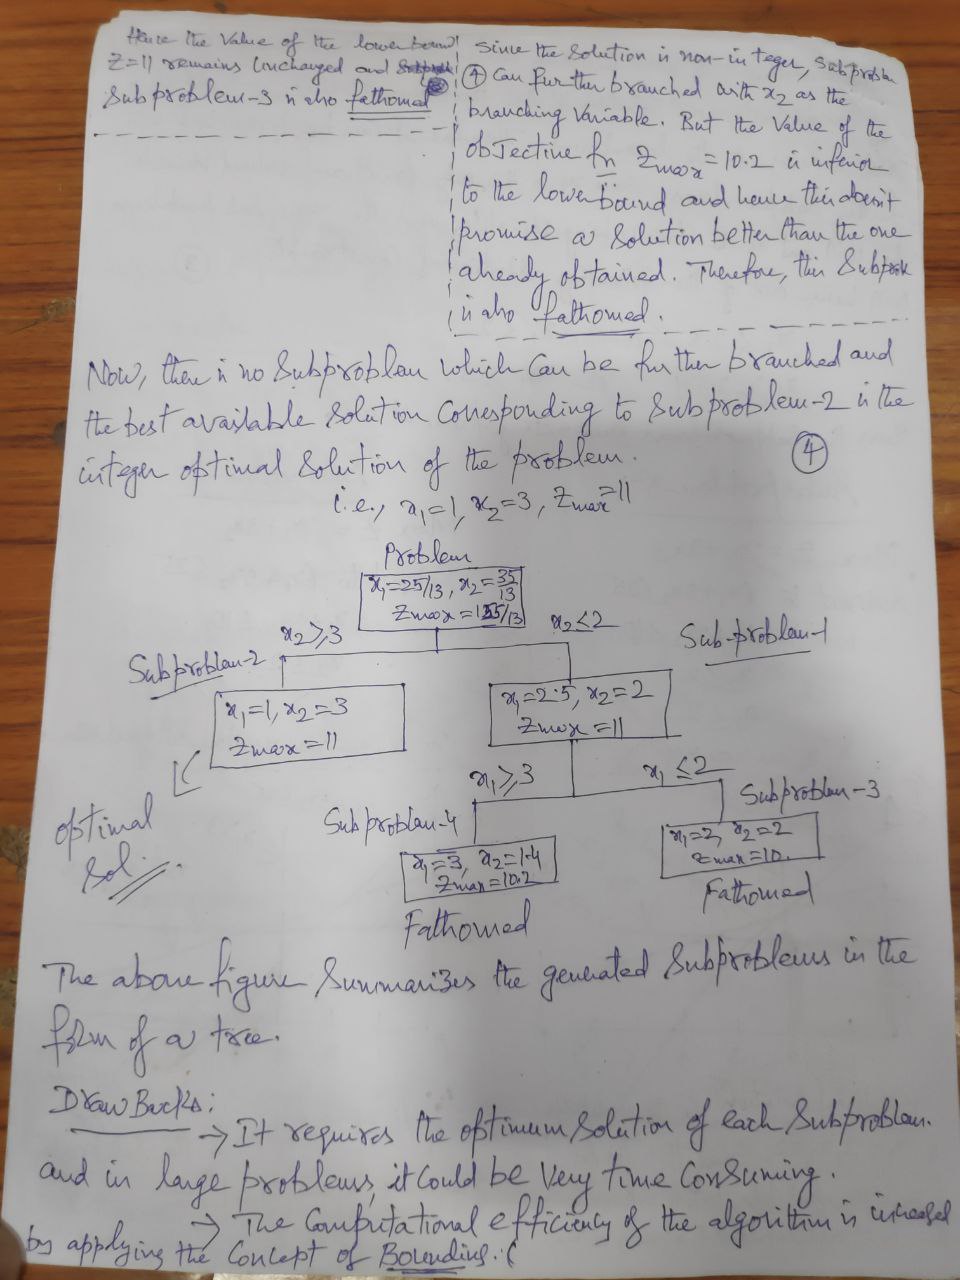 Hence the Value of the lower bound
Z=11 remains Unchanged and
Subproblem-3 is also fathomed
Since the Solution is non-integer, Subproblem
④ Can further branched with x₂ as the
branching Variable. But the Value of the
objective fn Zmax=10.2 is inferior
to the lower bound and hence this doesn't
promise a Solution better than the one
already obtained. Therefore, this Subprob
is also fathomed.
Now, there is no Subproblem which Can be further branched and
the best available Solution Corresponding to Subproblem-2 is the
integer optimal Solution of the problem.
④
i.e., x₁=1, x₂=3, Zmax=11
Problem
x₁=25/13, x₂=35/13
Zmax=155/13
x₂≥3
x₂≤2
Subproblem-2
Sub-problem-1
x₁=1, x₂=3
Zmax=11
x₁=2.5, x₂=2
Zmax=11
optimal
Sol.
x₁≥3
x₁≤2
Subproblem-4
Subproblem-3
x₁=3, x₂=1.4
Zmax=10.2
x₁=2, x₂=2
Zmax=10.
Fathomed
Fathomed
The above figure Summarizes the generated Subproblems in the
form of a tree.
DrawBacks:
→ It requires the optimum Solution of each Subproblem.
and in large problems, it Could be Very time Consuming.
→ The Computational efficiency of the algorithm is increased
by applying the Concept of Bounding.